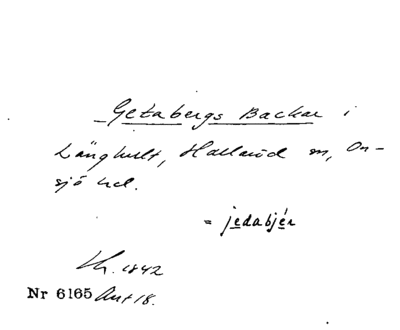 Getabergs Backar i
Långhult, Hallaröd sn, On-
sjö hd.
= jedabjér
Lh. 1842
Nr 6165 Ant 18.